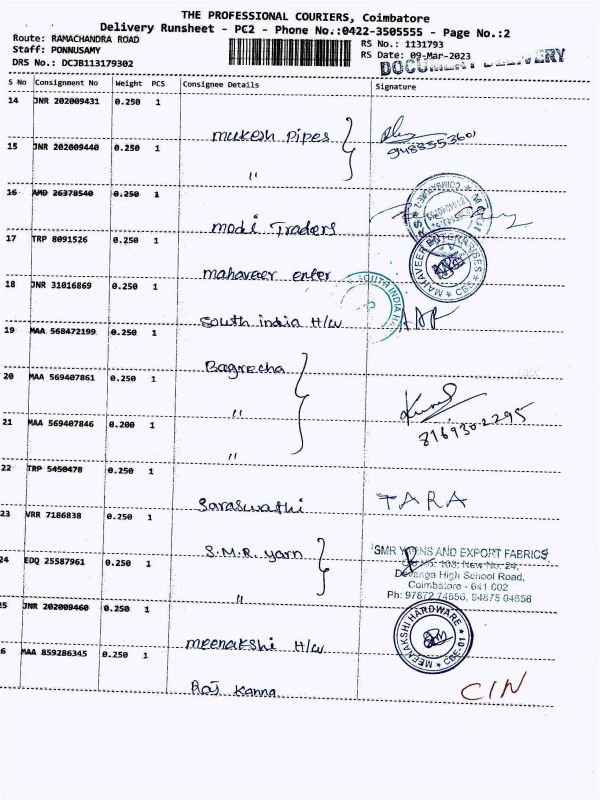 THE PROFESSIONAL COURIERS, Coimbatore
Delivery Runsheet - PC2 - Phone No.:0422-3505555 - Page No.:2
Route: RAMACHANDRA ROAD
Staff: PONNUSAMY
DRS No.: DCJB113179302
RS No.: 1131793
RS Date: 09-Mar-2023
DOCUMENT DELIVERY
S No Consignment No Weight PCS Consignee Details Signature
14 JNR 202009431 0.250 1 Mukesh Pipes
9488553601
15 JNR 202009440 0.250 1 "
16 AMD 26378540 0.250 1 Modi Traders
17 TRP 8091526 0.250 1 mahaveer enter
MAHAVEER ENTERPRISES
18 JNR 31016869 0.250 1 South india H/w
SOUTH INDIA
19 MAA 568472199 0.250 1 Bagrecha
20 MAA 569407861 0.250 1 "
8169302295
21 MAA 569407846 0.200 1 "
22 TRP 5450478 0.250 1 Saraswathi TARA
23 VRR 7186838 0.250 1 S.M.R. yarn
SMR YARNS AND EXPORT FABRICS
New No. 24,
Devanga High School Road,
Coimbatore - 641 002
Ph: 97872 74556, 94875 04556
24 EDQ 25587961 0.250 1 "
25 JNR 202009460 0.250 1 meenakshi H/w
MEENAKSHI HARDWARE
CBE-01
6 MAA 859286345 0.250 1 Raj Kanna
CIN